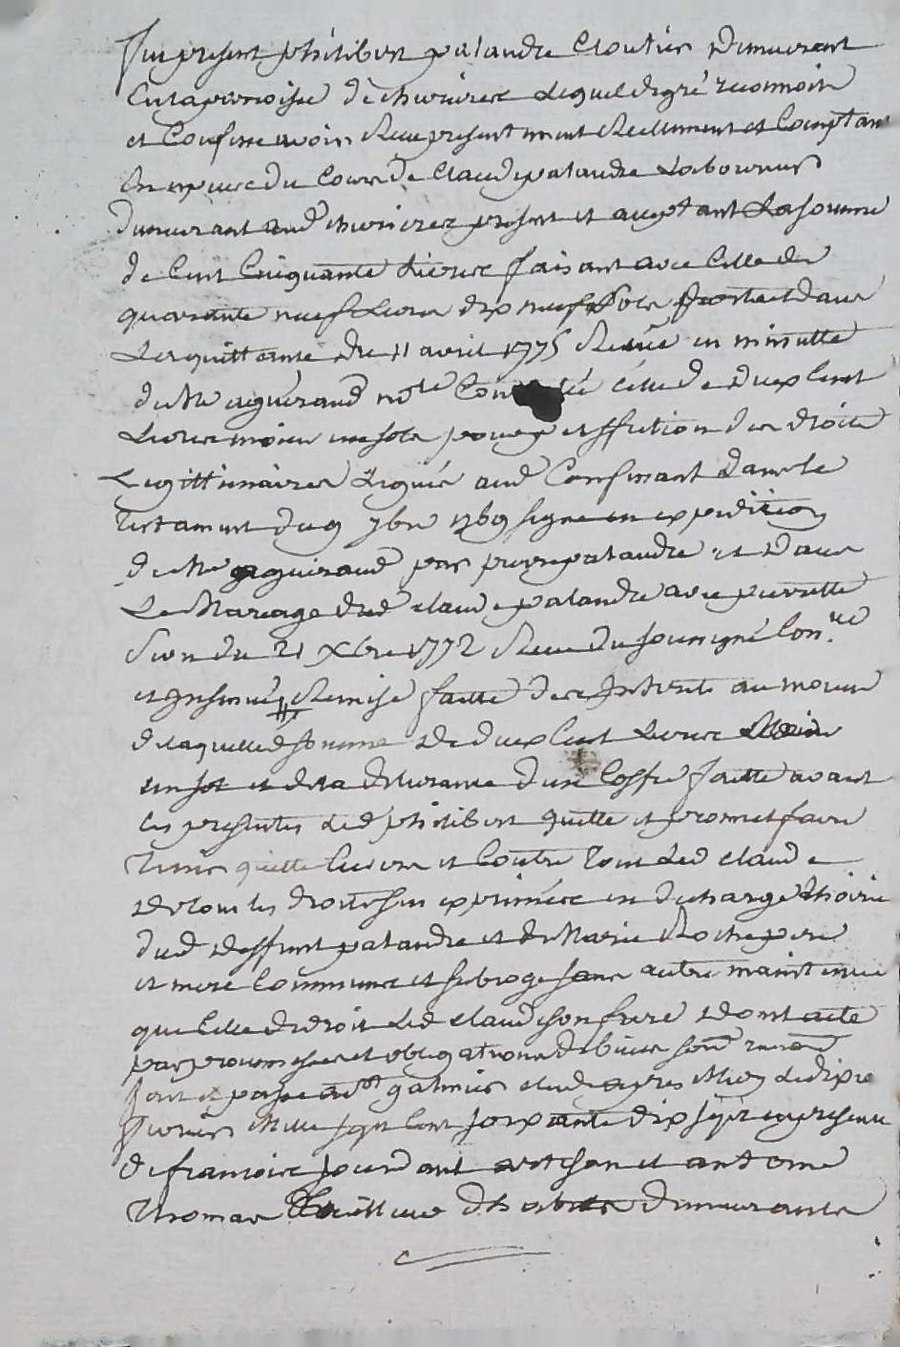 fut present philibert palandre Cloutier Demeurant
En la parroisse de chevrieres Lequel de gré reconnoit
et Confesse avoir Receu presentement Reellement et Comptant
En espece du Cours de Claude palandre Laboureur
Demeurant aud chevrieres present et acceptant La somme
de Cent Cinquante Livres faisant avec Celle de
quarante neuf Livres dix neuf sols portée Dans
La quittance du 11 avril 1775 Receüe en minutte
de Me aguiraud nore Celle de Deux Cent
Livres moins un sols pour des droits
Legittimaires Legués aud Confessant dans le
testament du 9 7bre 1769 signé en expedition
de Me aguiraud par pierre palandre et Dans
Le Mariage dud claude palandre avec pierrette
du 21 Xbre 1772 Receu du soussigné
et insinué Remise faitte des Interets au moyen
de laquelle ditte somme de deux Cent Livres Moins
un sol et de la delivrance d'un Coffre faitte avant
les presentes Led philibert quitte et promet faire
tenir quitte Envers et Contre tous Led claude
de tous les droits sus exprimés en decharge
dud deffunt palandre et de Marie Roche pere
et mere Communs et subroge sans autre maintenue
que Celle de droit Led claude son frere dont acte
par promesses et obligations de biens
fait et passé a st galmier etude apres Midy Le dix
fevrier Mille sept Cent soixante dix sept en presence
de francois Jourdant artisan et antoine
thomas Demeurants